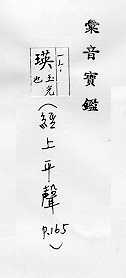 彙音寶鑑
瑛玉光也
(經上平聲 P.165)